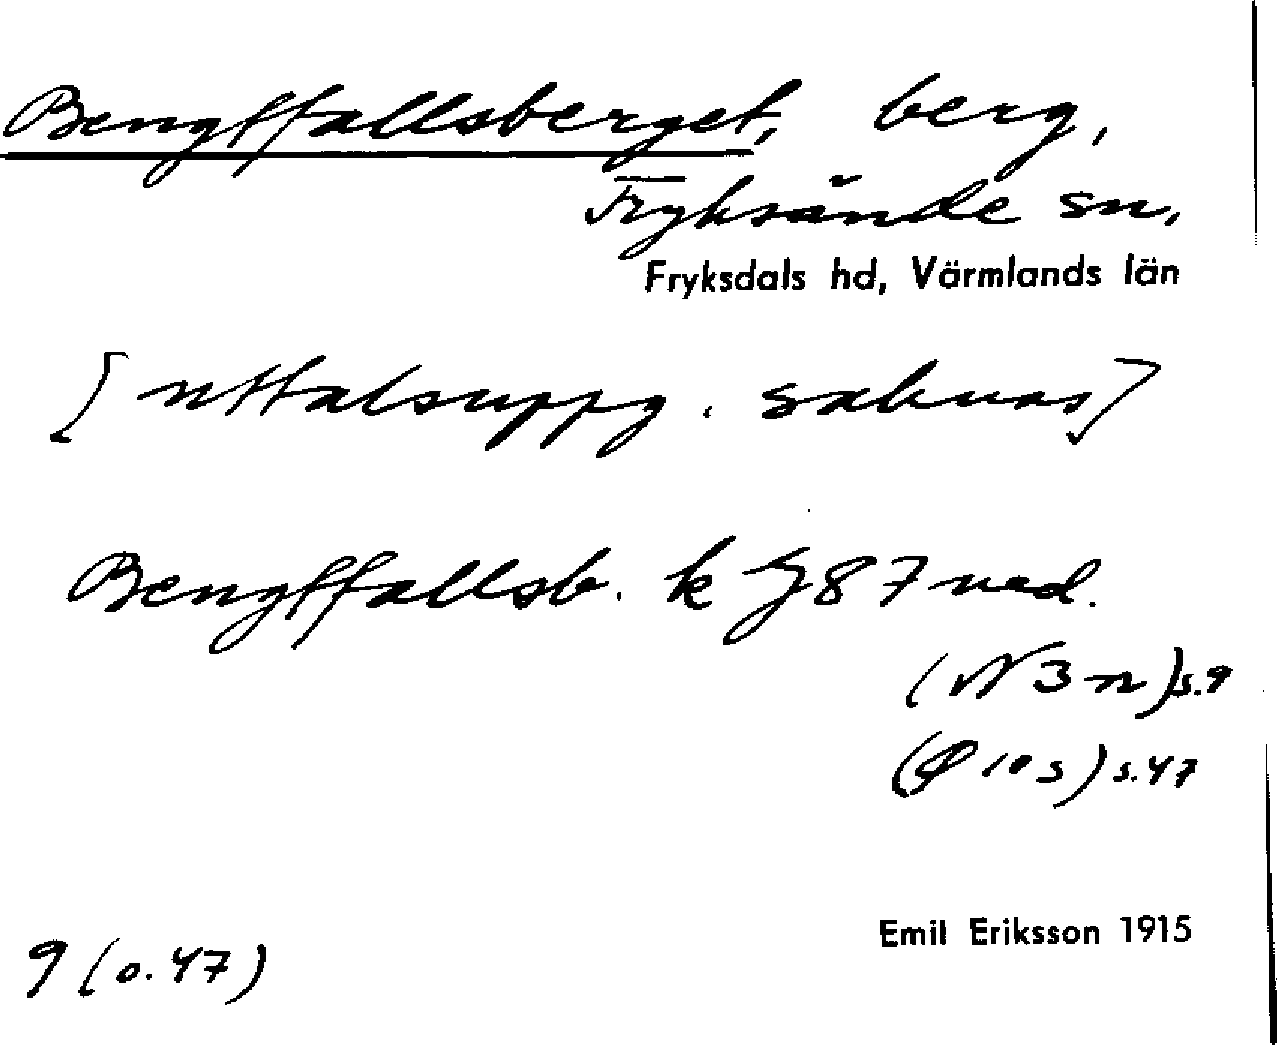 Bengtfallsberget, berg,
Fryksände sn,
Fryksdals hd, Värmlands län
[uttalsuppg. saknas]
Bengtfallsb. k G 87 ned.
(N 3 n) s. 9
(Ø 10 s) s. 47
Emil Eriksson 1915
9 (o. 47)